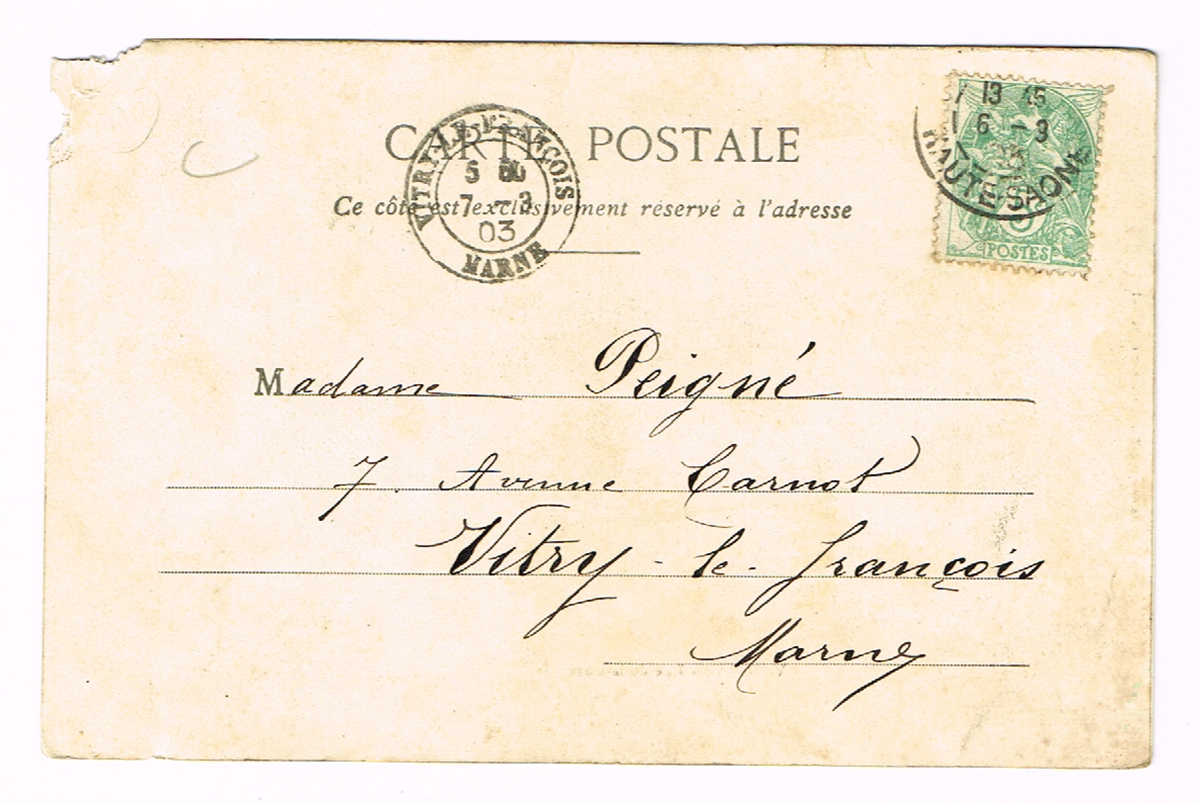 CARTE POSTALE
Ce côté est exclusivement réservé à l'adresse
VITRY-LE-FRANÇOIS
7 - 3
03
MARNE
13 45
6 - 3
HAUTE-SAONE
POSTES
Madame Peigné
7. Avenue Carnot
Vitry-le-François
Marne